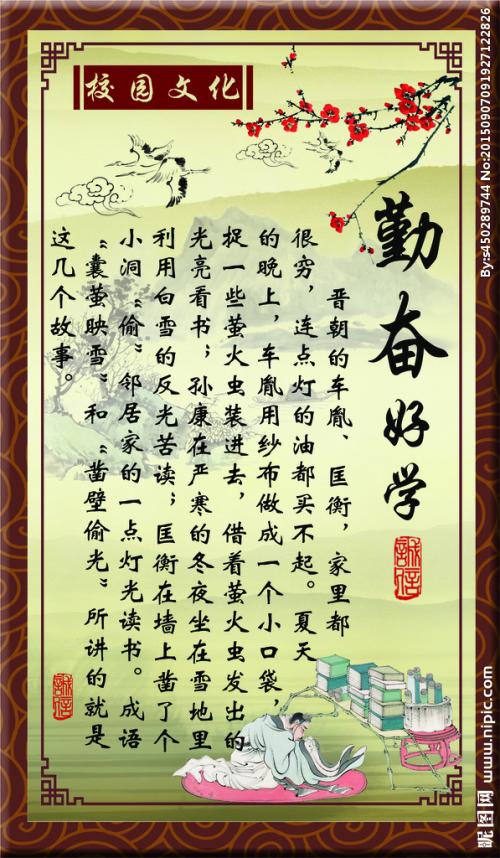 校园文化
勤奋好学
誠信
晋朝的车胤、匡衡,家里都
很穷,连点灯的油都买不起。夏天
的晚上,车胤用纱布做成一个小口袋,
捉一些萤火虫装进去,借着萤火虫发出的
光亮看书;孙康在严寒的冬夜坐在雪地里
利用白雪的反光苦读;匡衡在墙上凿了个
小洞“偷”邻居家的一点灯光读书。成语
“囊萤映雪”和“凿壁偷光”所讲的就是
这几个故事。
誠信
By:s450289744 No:20150907091927122826
昵图网 www.nipic.com